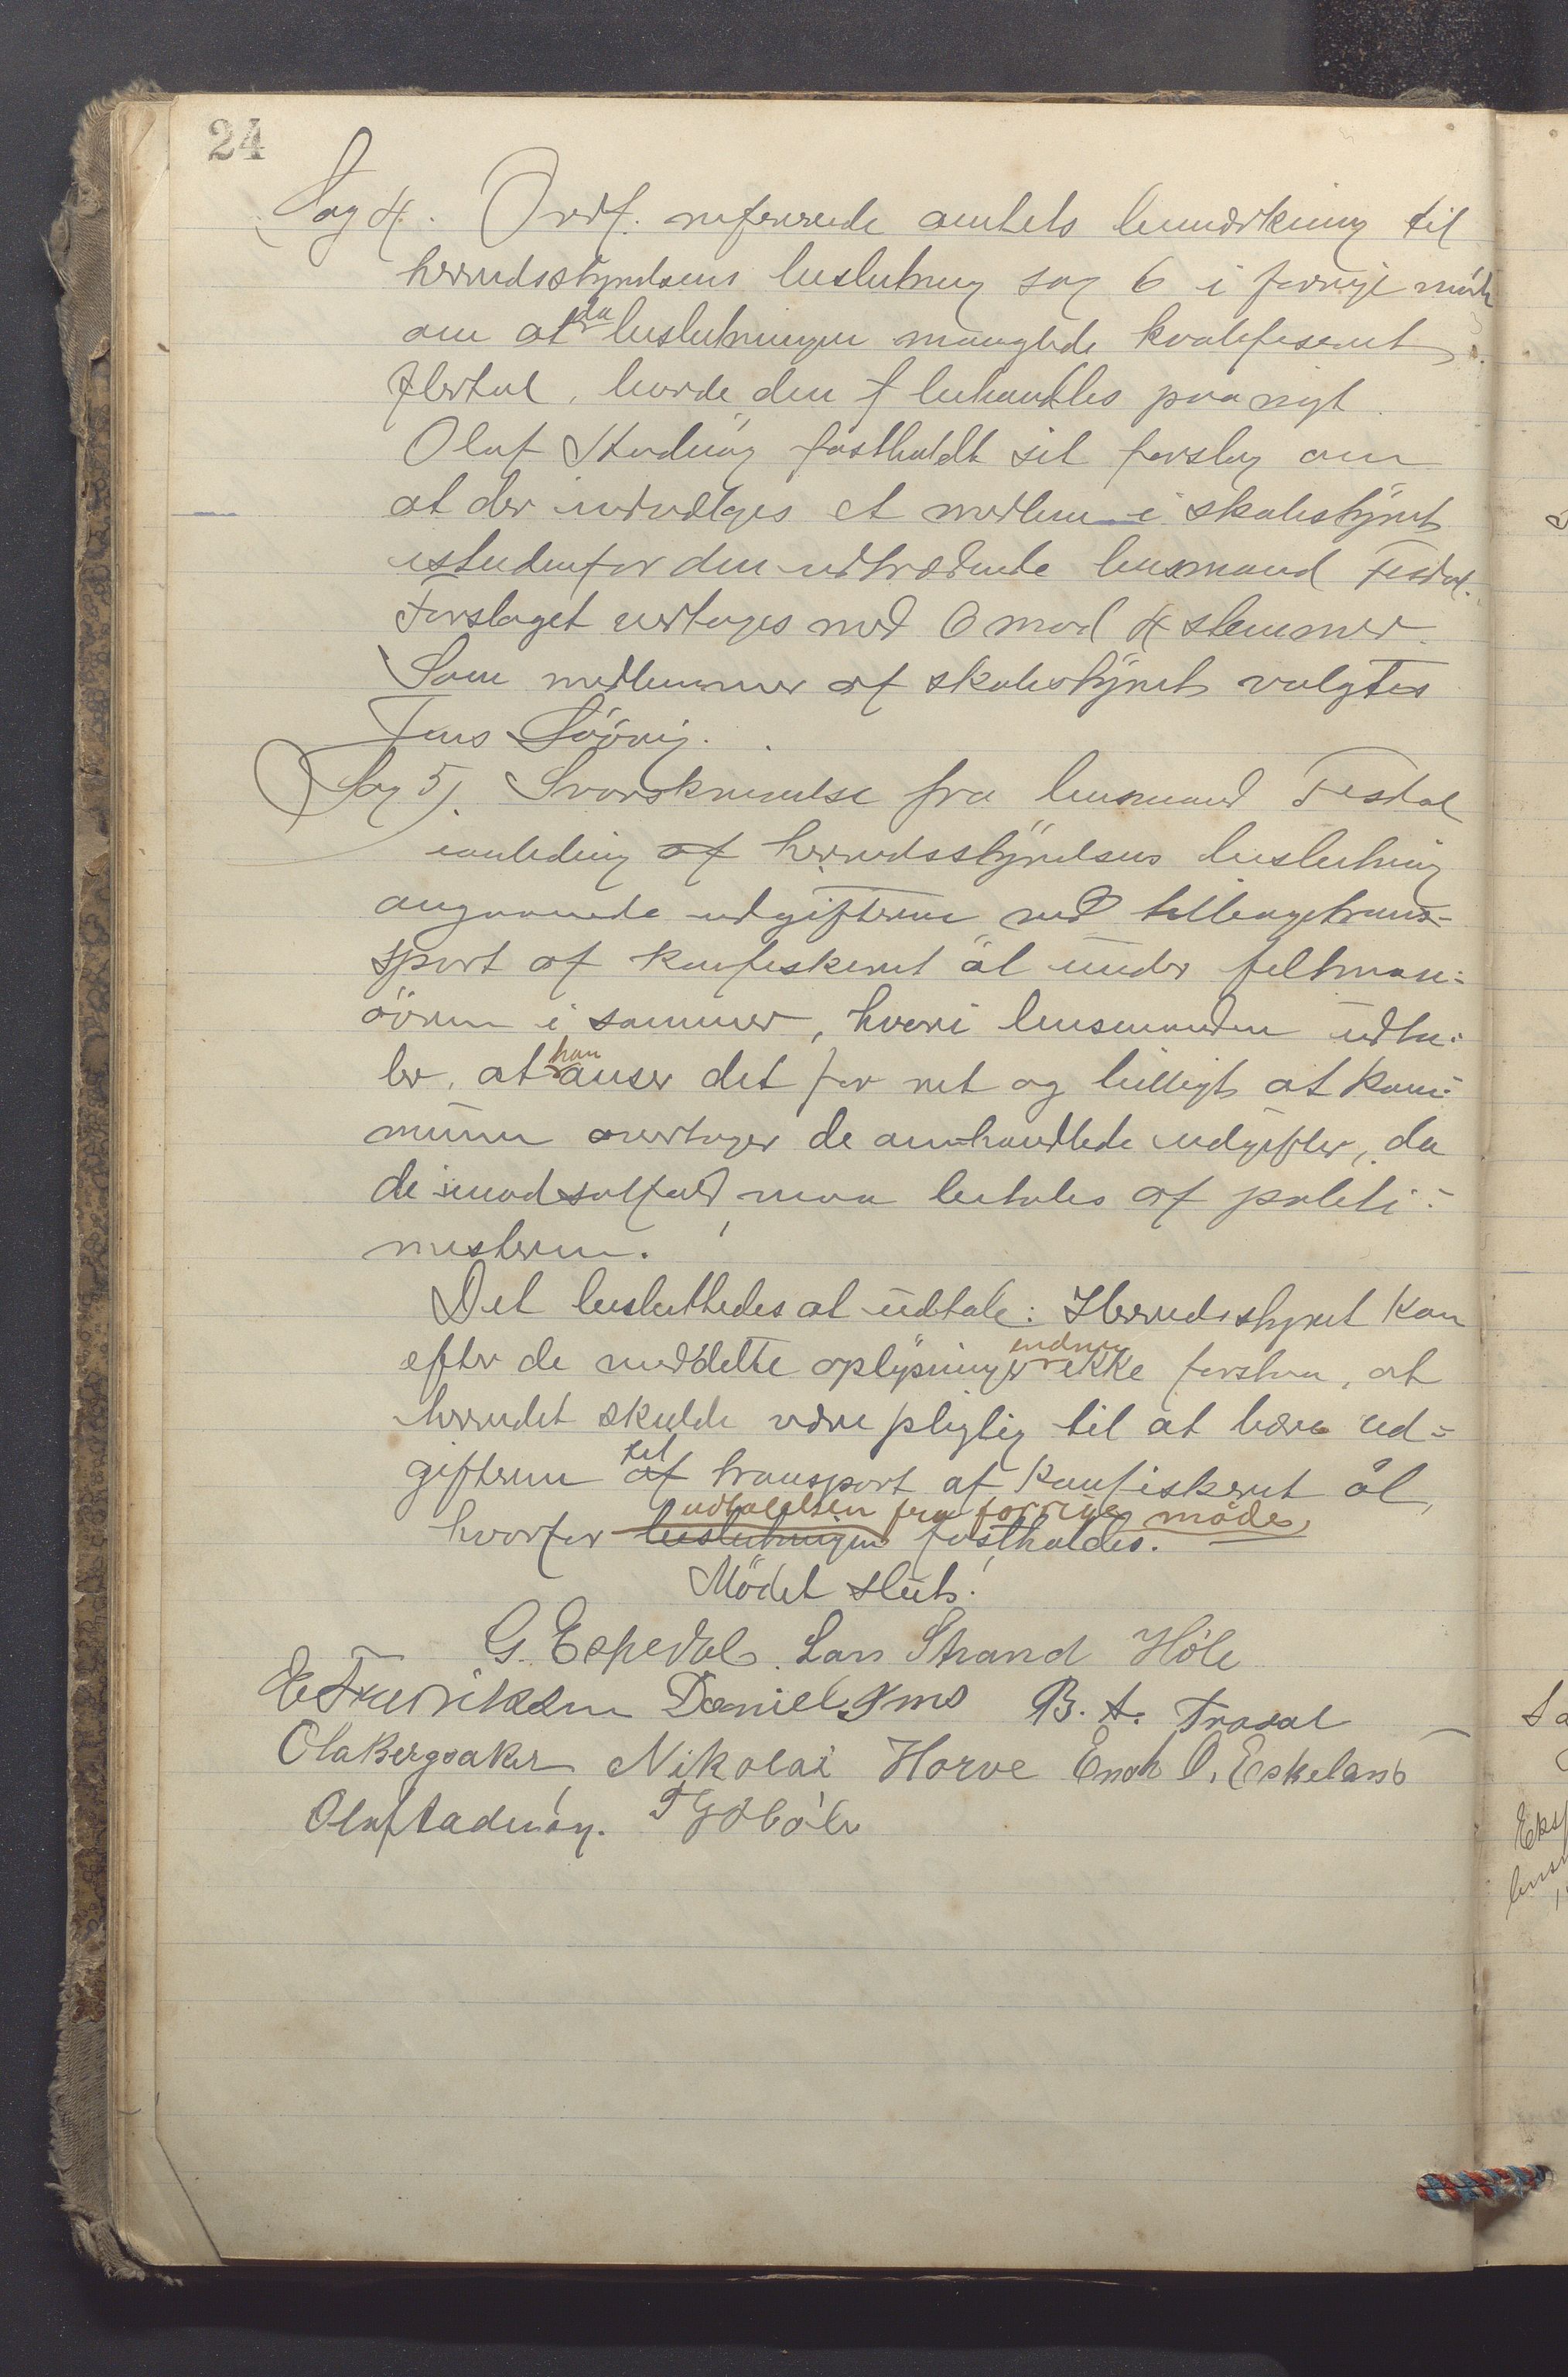 24
Sag 4. Ordf. refererede amtets bemærkning til
herredsstyrelsens beslutning sag 6 i forrige møde
om at da beslutningen manglede kvalifiseret
flertal, burde den behandles paa nyt.
Olaf Stadnöy fastholdt sit forslag om
at der indvælges et medlem i skolestyret
istedenfor den udtrædende lensmand Tesdal.
Forslaget vertoges med 6 mod 4 stemmer.
Som medlemmer af skolestyret valgtes
Jens
Sag 5). Svarskrivelse fra lensmand Tesdal
ianleding af herredsstyrelsens beslutning
angaaende udgifterne ved tilbagetrans-
sport af konfiskeret öl under feltman-
övren i sommer, hvori lensmanden udta-
ler, at han anser det for ret og billigt at kom-
munen overtager de omhandlede udgifter, da
de imodsatfald maa betales af politi-
mesteren.
Det besluttedes at udtale: Herredsstyret kan
efter de meddelte oplysninger endnu ikke forstaa, at
herredet skulde være pligtig til at bære ud-
gifterne til af transport af konfiskeret øl,
udtalelsen fra forrige möde
hvorfor beslutningen fastholdes.
Mödet slut.
G. Espedal. Lars Strand Höle
E Fredriksen Daniel Ims B. A. Frasal
Ola Bergsaker Nikolai Horve Enok O. Eskeland
Olaf Stadnöy.